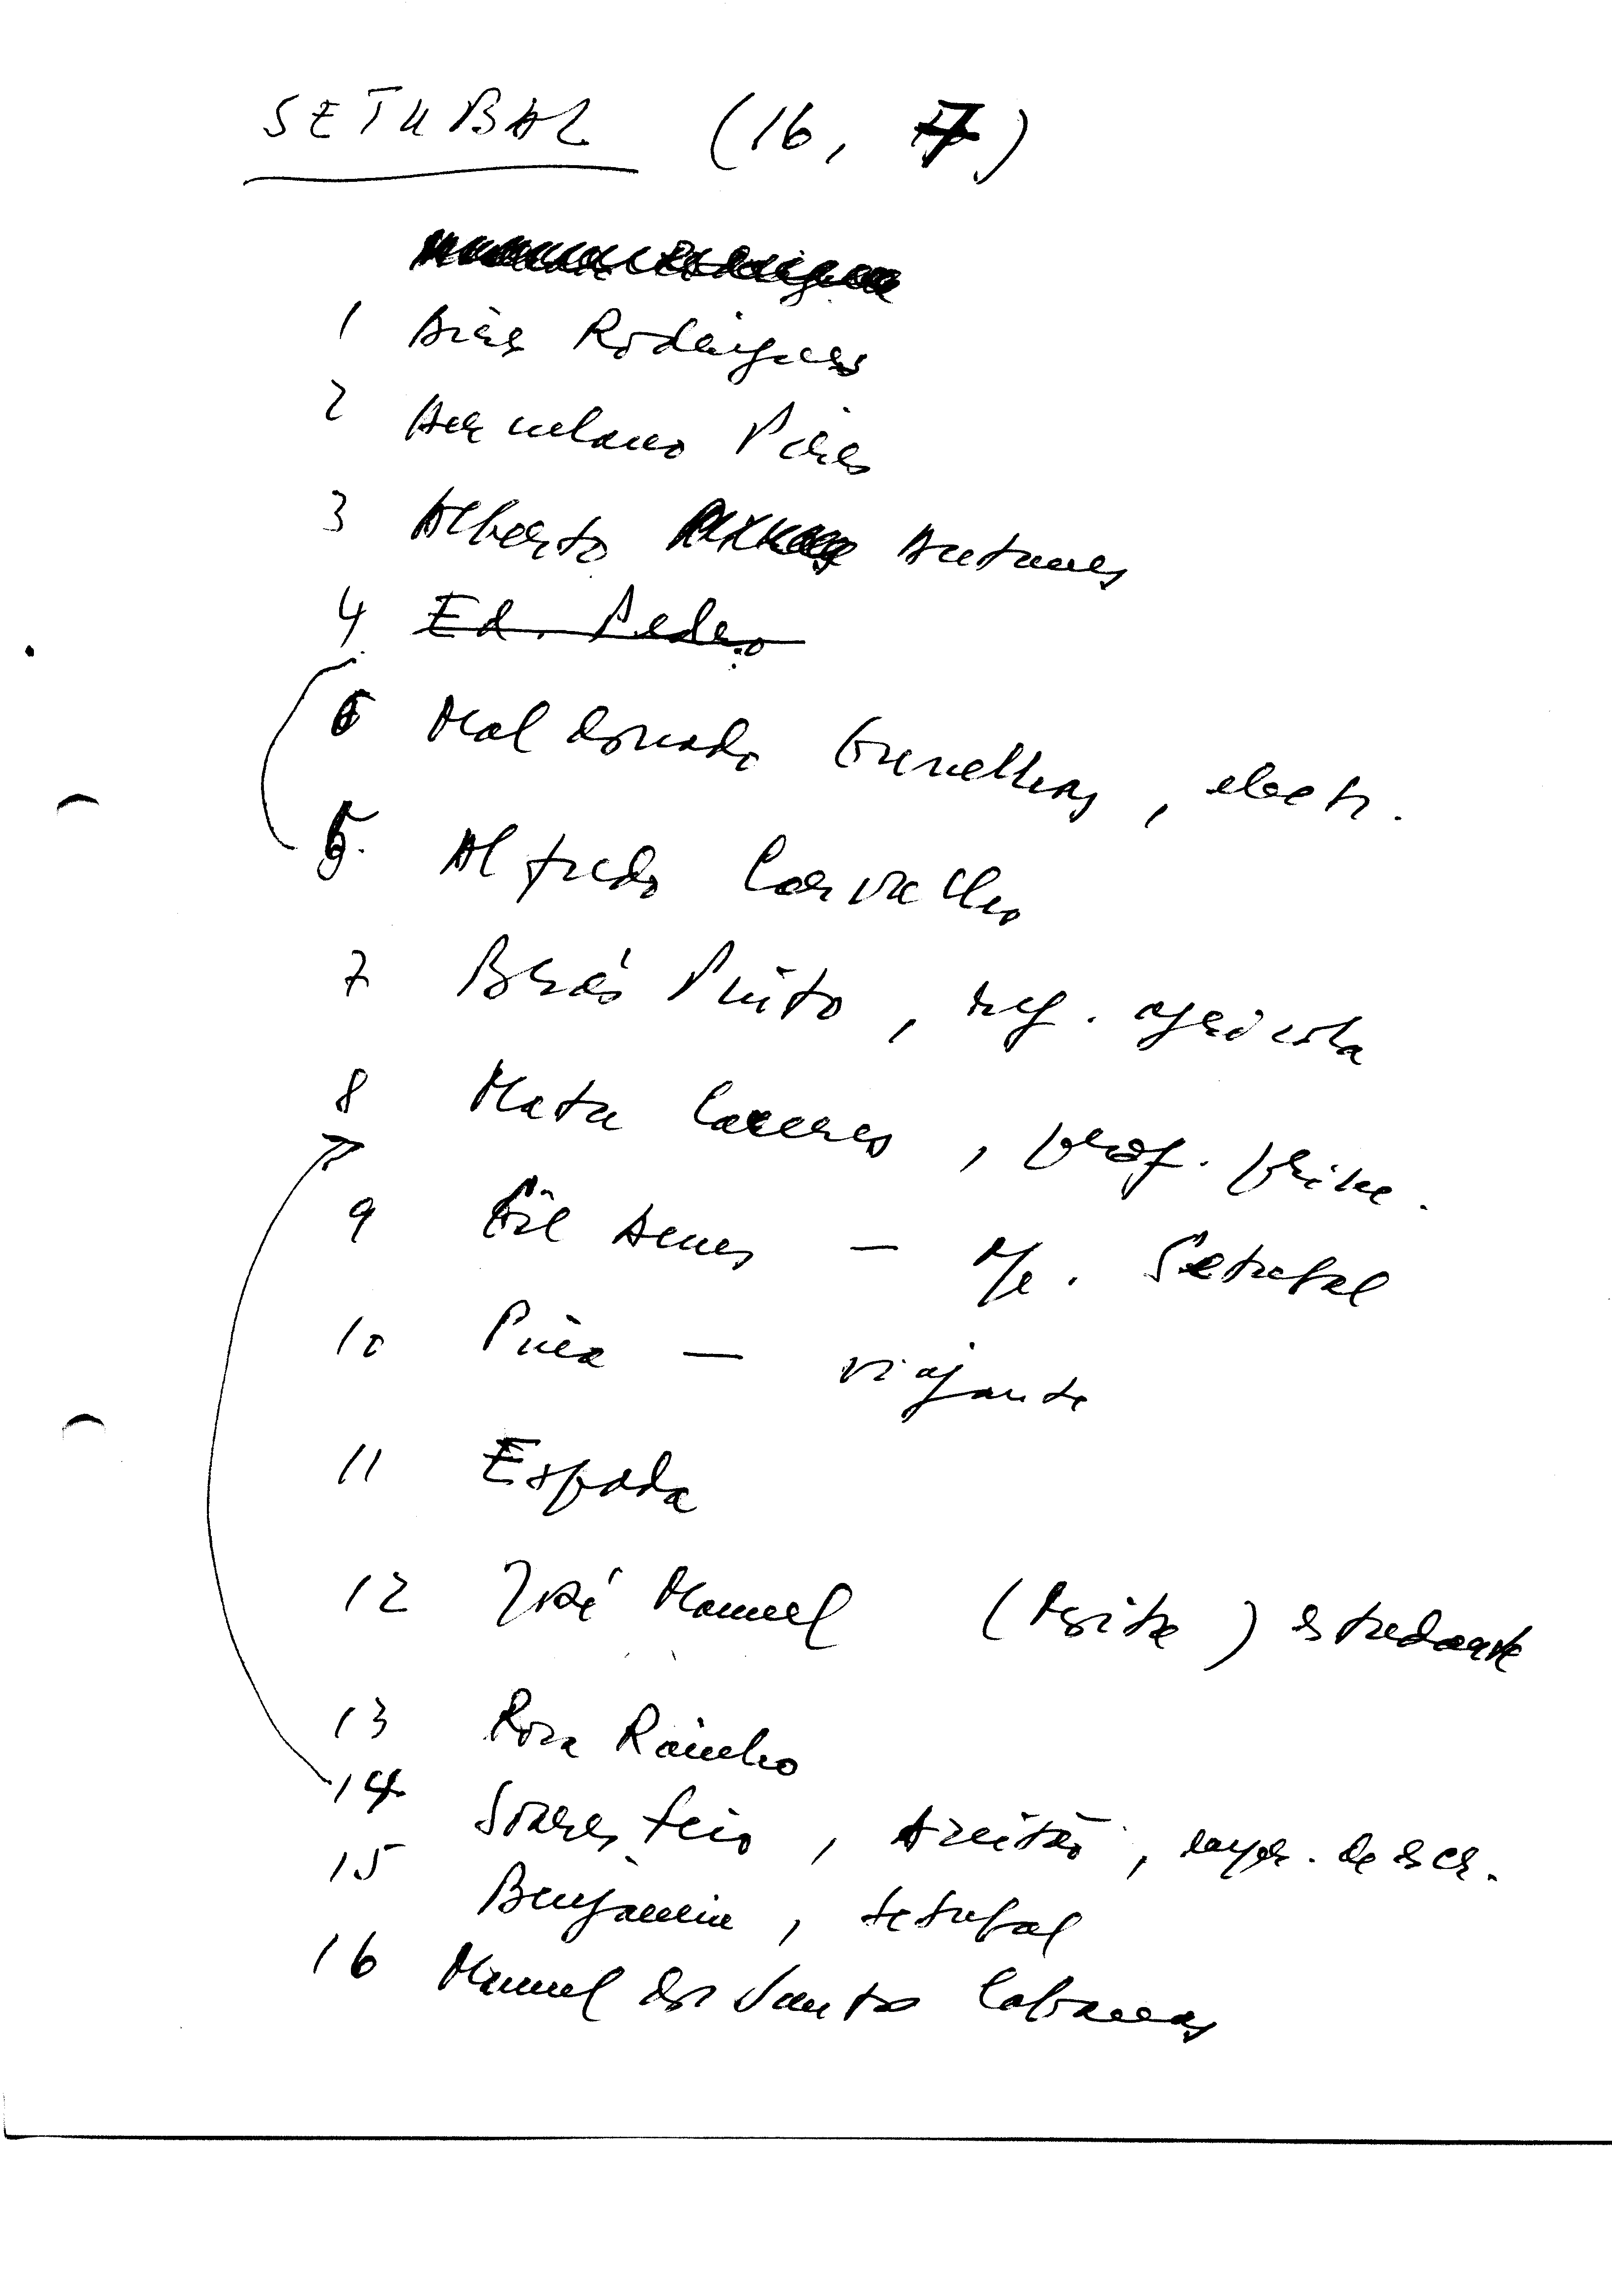 SETUBAL (16, 7)
1 Aires Rodrigues
2 Hermelano Pires
3 Alberto Antunes
4 Ed. Pedro
6 Maldonado Gonelhas, electr.
5. Alfredo Carvalho
7 Brás Pinto, reg. agrícola
8 Mata Caceres, prof. prim.
9 Gil Antunes — Setubal
10 Pina — viajante
11 Espada
12 José Manuel (Moita) estudante
13 Rosa Rainho
14 Soares Feio, Azeitão, de escr.
15 Benjamin, Setubal
16 Manuel dos Santos Cabanas